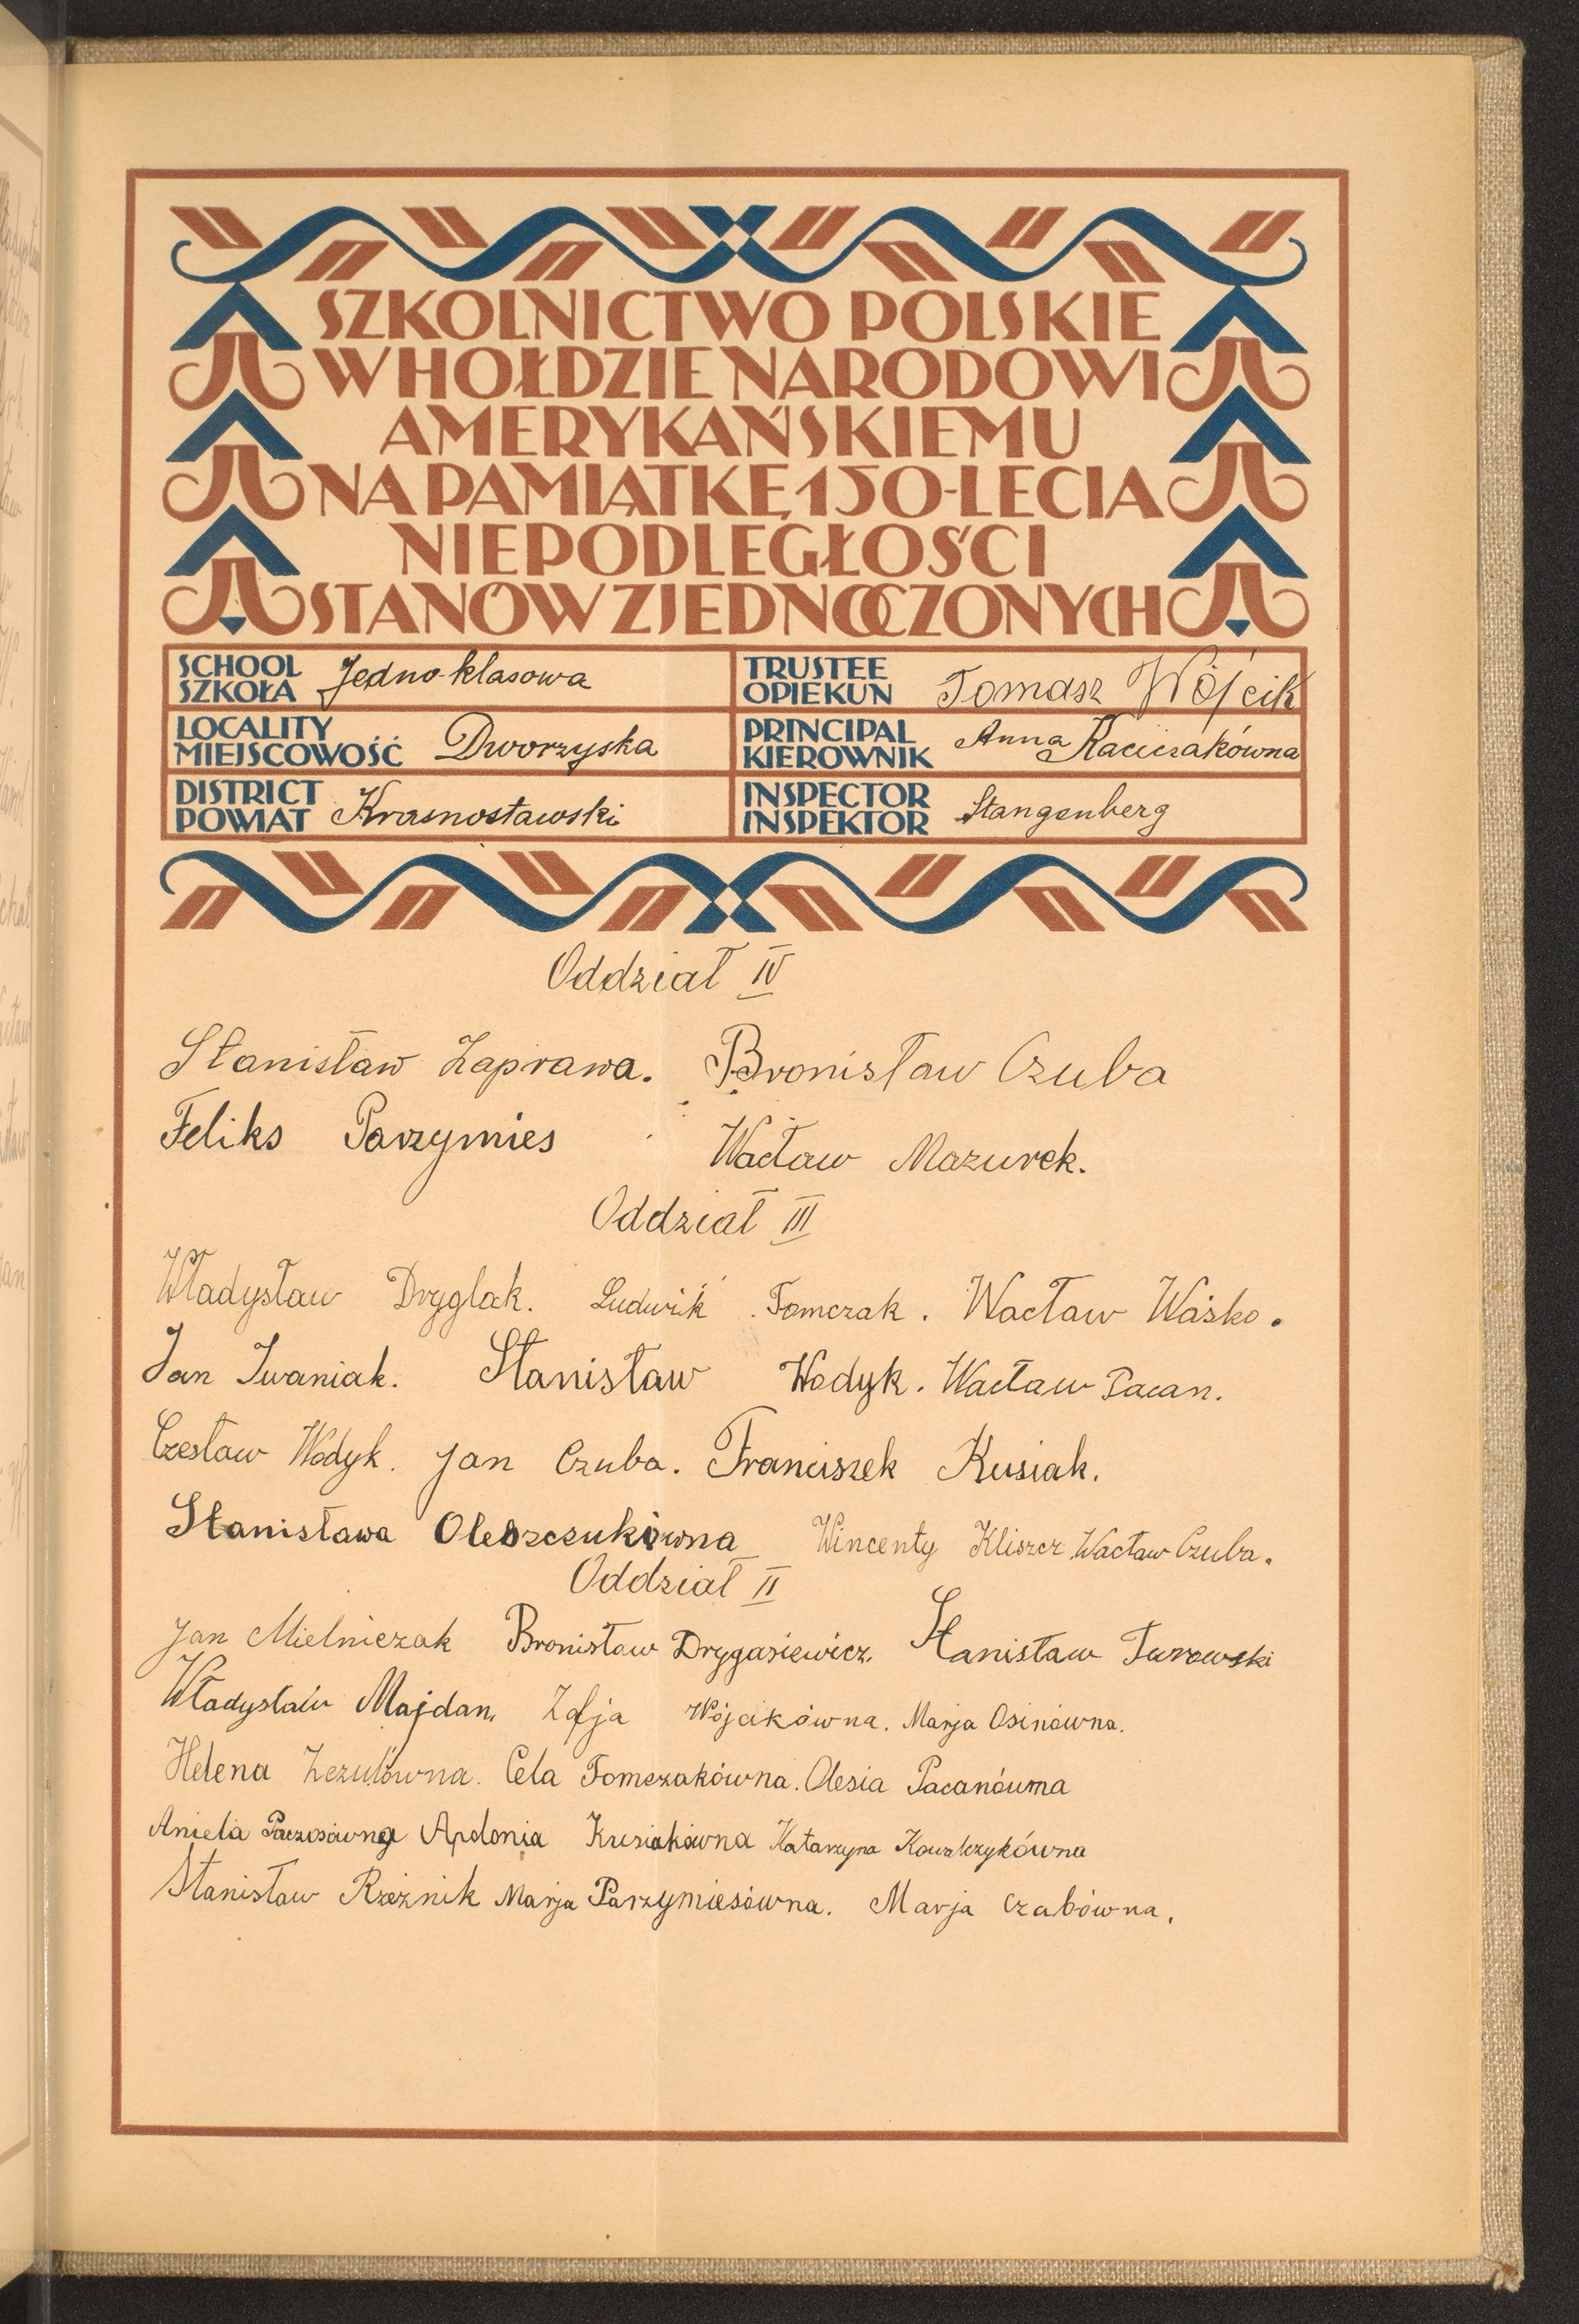 SZKOLNICTWO POLSKIE
W HOŁDZIE NARODOWI
AMERYKAŃSKIEMU
NA PAMIĄTKĘ 150-LECIA
NIEPODLEGŁOŚCI
STANÓW ZJEDNOCZONYCH
SCHOOL
SZKOŁA Jedno-klasowa
TRUSTEE
OPIEKUN Tomasz Wójcik
LOCALITY
MIEJSCOWOŚĆ Dworzyska
PRINCIPAL
KIEROWNIK Anna
DISTRICT
POWIAT Krasnostawski
INSPECTOR
INSPEKTOR Stangenberg
Oddział IV
Stanisław Zaprawa. Bronisław Czuba
Feliks Parzymies Wacław Mazurek.
Oddział III
Władysław Dryglak. Ludwik Tomczak. Wacław Waśko.
Jan Iwaniak. Stanisław Wodyk. Wacław Pacan.
Czesław Wodyk. Jan Czuba. Franciszek Kusiak.
Stanisława Oleszczukówna Wincenty Kliszcz Wacław Czuba.
Oddział II
Jan Mielniczak Bronisław Drygasiewicz. Stanisław Turowski
Władysław Majdan. Zofja Wójcikówna. Marja Osinówna.
Helena Zezulówna. Cela Tomczakówna. Olesia Pacanówna
Aniela Paczosówna Apolonia Kusiakówna Katarzyna Kowalczykówna
Stanisław Rzeżnik Marja Parzymiesówna. Marja Czabówna.